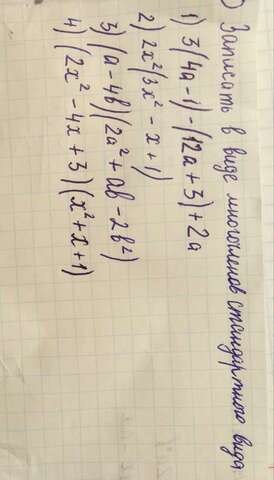 ) Записать в виде многочленов стандартного вида.
1) 3(4a-1)-(12a+3)+2a
2) 2x²(3x²-x+1)
3) (a-4b)(2a²+ab-2b²)
4) (2x²-4x+3)(x²+x+1)